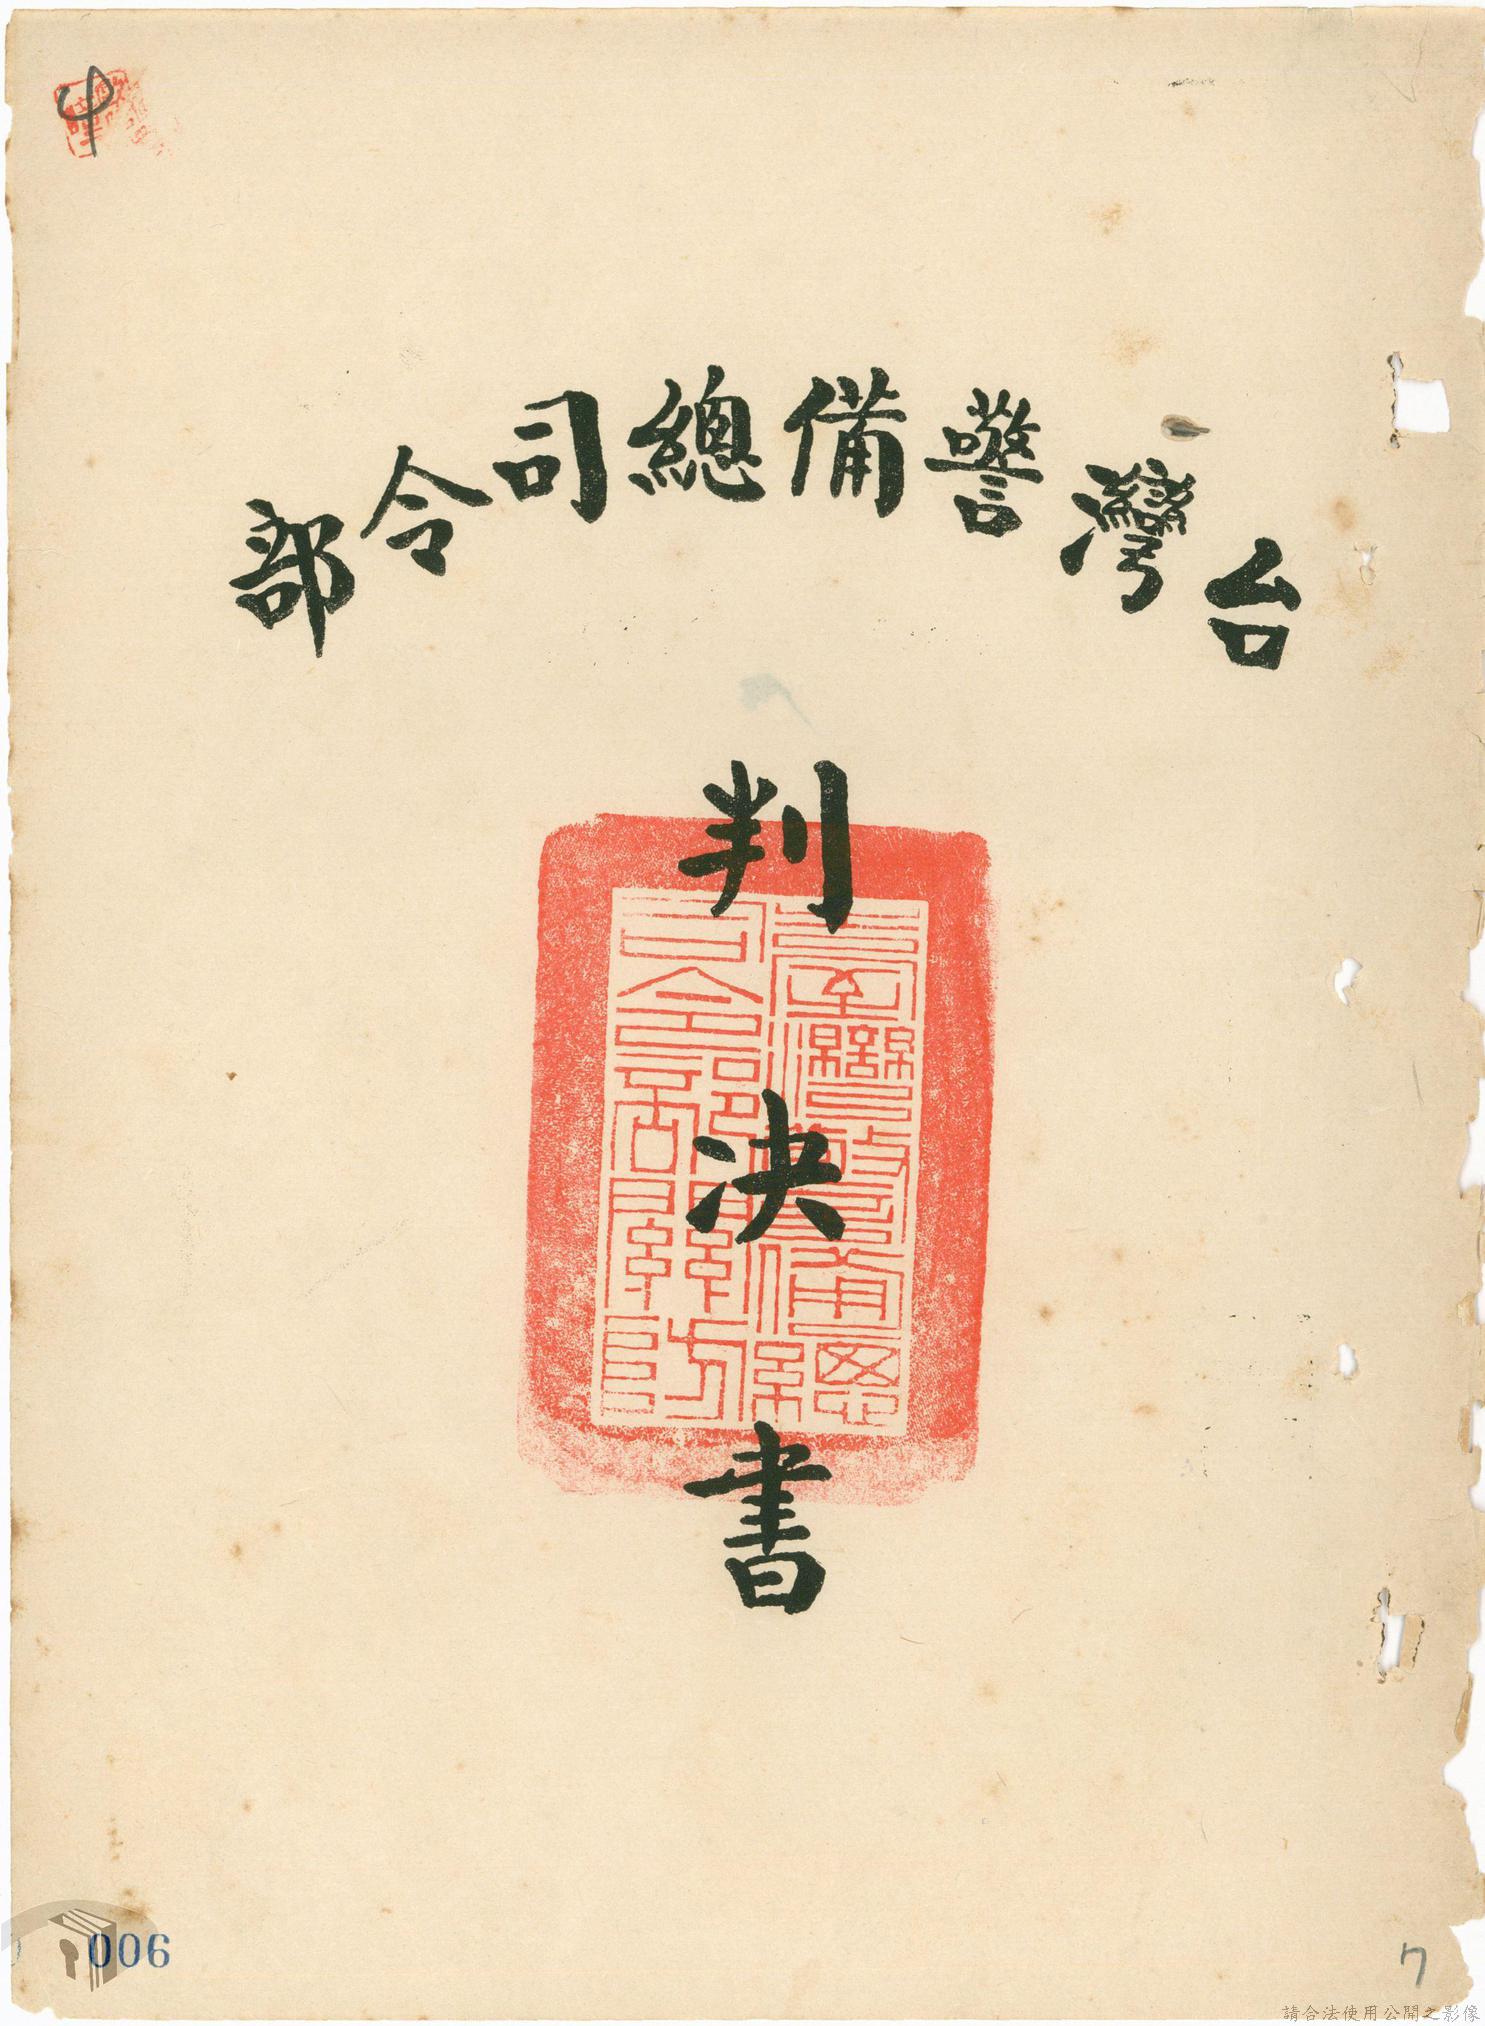 台灣警備總司令部
判決書
臺灣警備總
司令部關防
006
7
請合法使用公開之影像